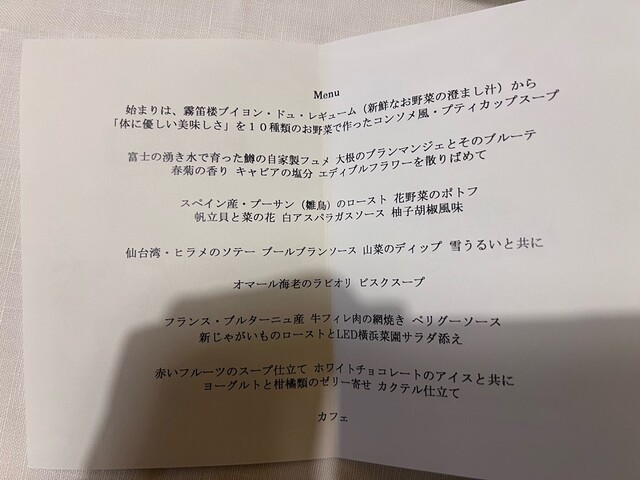 Menu
始まりは、霧笛楼ブイヨン・ドュ・レギューム（新鮮なお野菜の澄まし汁）から
「体に優しい美味しさ」を１０種類のお野菜で作ったコンソメ風・プティカップスープ
富士の湧き水で育った鱒の自家製フュメ 大根のブランマンジェとそのブルーテ
春菊の香り キャビアの塩分 エディブルフラワーを散りばめて
スペイン産・プーサン（雛鳥）のロースト 花野菜のポトフ
帆立貝と菜の花 白アスパラガスソース 柚子胡椒風味
仙台湾・ヒラメのソテー ブールブランソース 山菜のディップ 雪うるいと共に
オマール海老のラビオリ ビスクスープ
フランス・ブルターニュ産 牛フィレ肉の網焼き ペリグーソース
新じゃがいものローストとLED横浜菜園サラダ添え
赤いフルーツのスープ仕立て ホワイトチョコレートのアイスと共に
ヨーグルトと柑橘類のゼリー寄せ カクテル仕立て
カフェ